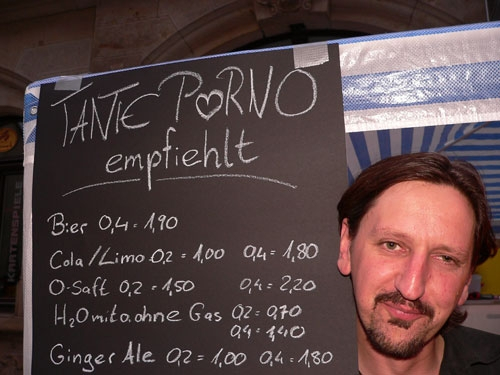 TANTE PORNO
empfiehlt
Bier 0,4 = 1,90
Cola/Limo 0,2 = 1,00 0,4 = 1,80
O-Saft 0,2 = 1,50 0,4 = 2,20
H2O mit o. ohne Gas 0,2 = 0,70
0,4 = 1,40
Ginger Ale 0,2 = 1,00 0,4 = 1,80
KARTENSPIELE